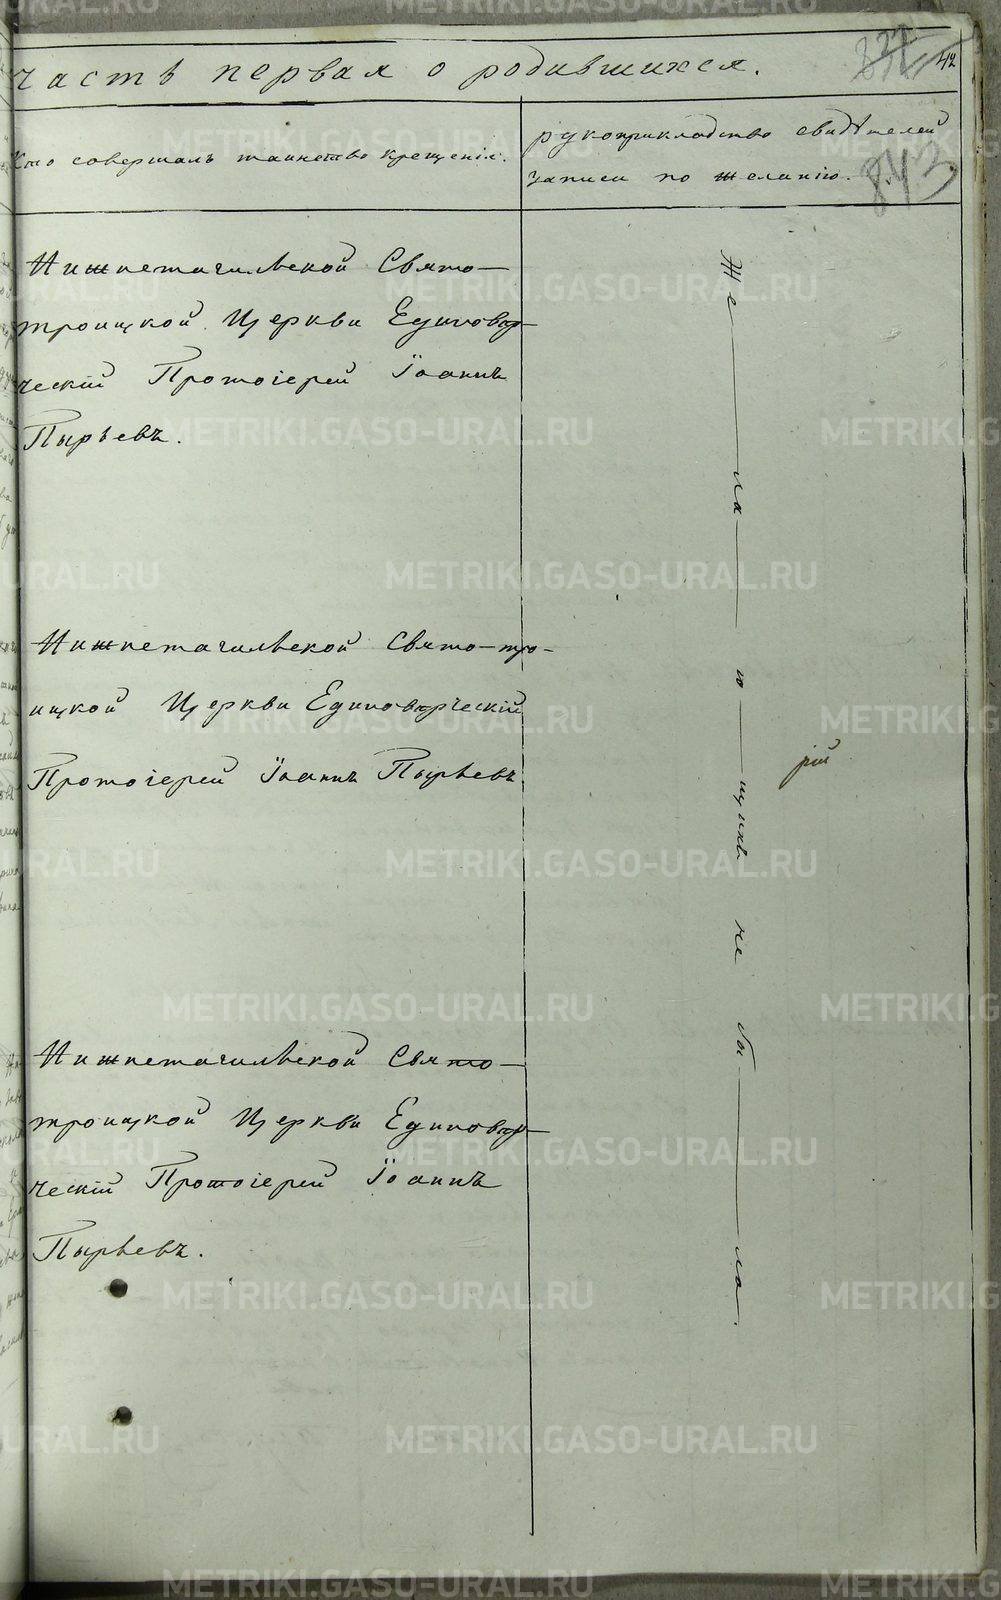 часть первая о родившихся.
42
843
Кто совершалъ таинство крещенія.
рукоприкладство свидѣтелей
записи по желанію.
Нижнетагильской Свято—
троицкой Церкви Единовѣр—
ческій Протоіерей Іоаннъ
Пырьевъ.
Нижнетагильской Свято—тро-
ицкой Церкви Единовѣрческій
Протоіерей Іоаннъ Пырьевъ.
Нижнетагильской Свято—
троицкой Церкви Единовѣр—
ческій Протоіерей Іоаннъ
Пырьевъ.
Же—ла—ю—щихъ не бы—ло.
рій
METRIKI.GASO-URAL.RU